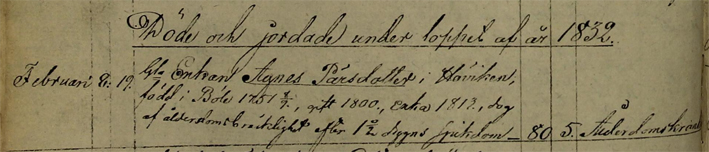 Döde och jordade under loppet af år 1832.
Februari 8. 19. Enkan Agnes Pärsdotter i Håviken,
född i Böle 1751 8/7, gift 1800, enka 1819, dog
af ålderdomsbräcklighet efter dygns sjukdom – 80 5. Ålderdomskrämp